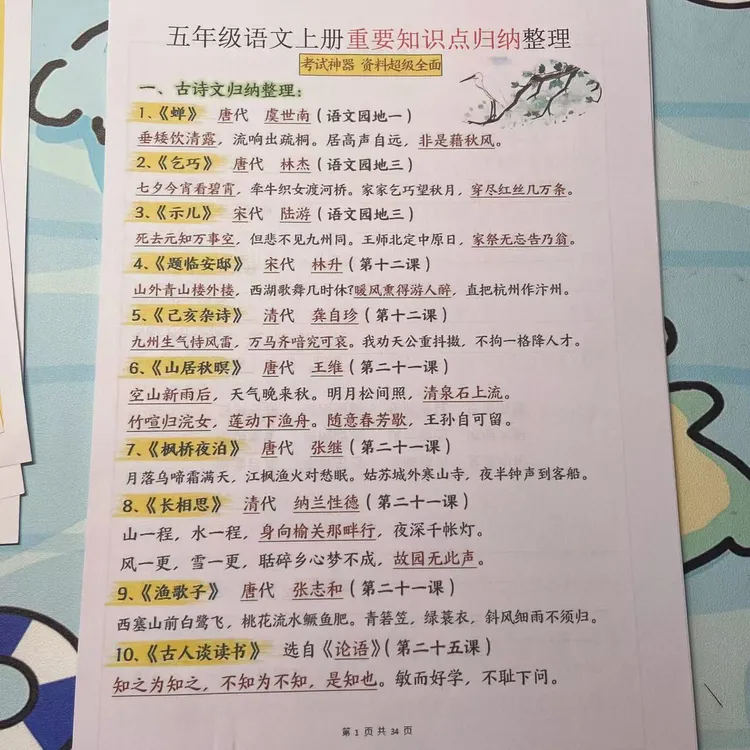 五年级语文上册重要知识点归纳整理
考试神器 资料超级全面
一、古诗文归纳整理：
1、《蝉》 唐代 虞世南（语文园地一）
垂矮饮清露，流响出疏桐。居高声自远，非是藉秋风。
2、《乞巧》 唐代 林杰（语文园地三）
七夕今宵看碧霄，牵牛织女渡河桥。家家乞巧望秋月，穿尽红丝几万条。
3、《示儿》 宋代 陆游（语文园地三）
死去元知万事空，但悲不见九州同。王师北定中原日，家祭无忘告乃翁。
4、《题临安邸》 宋代 林升（第十二课）
山外青山楼外楼，西湖歌舞几时休?暖风熏得游人醉，直把杭州作汴州。
5、《己亥杂诗》 清代 龚自珍（第十二课）
九州生气恃风雷，万马齐喑究可哀。我劝天公重抖擞，不拘一格降人才。
6、《山居秋暝》 唐代 王维（第二十一课）
空山新雨后，天气晚来秋。明月松间照，清泉石上流。
竹喧归浣女，莲动下渔舟。随意春芳歇，王孙自可留。
7、《枫桥夜泊》 唐代 张继（第二十一课）
月落乌啼霜满天，江枫渔火对愁眠。姑苏城外寒山寺，夜半钟声到客船。
8、《长相思》 清代 纳兰性德（第二十一课）
山一程，水一程，身向榆关那畔行，夜深千帐灯。
风一更，雪一更，聒碎乡心梦不成，故园无此声。
9、《渔歌子》 唐代 张志和（第二十一课）
西塞山前白鹭飞，桃花流水鳜鱼肥。青箬笠，绿蓑衣，斜风细雨不须归。
10、《古人谈读书》 选自《论语》（第二十五课）
知之为知之，不知为不知，是知也。敏而好学，不耻下问。
第 1 页 共 34 页